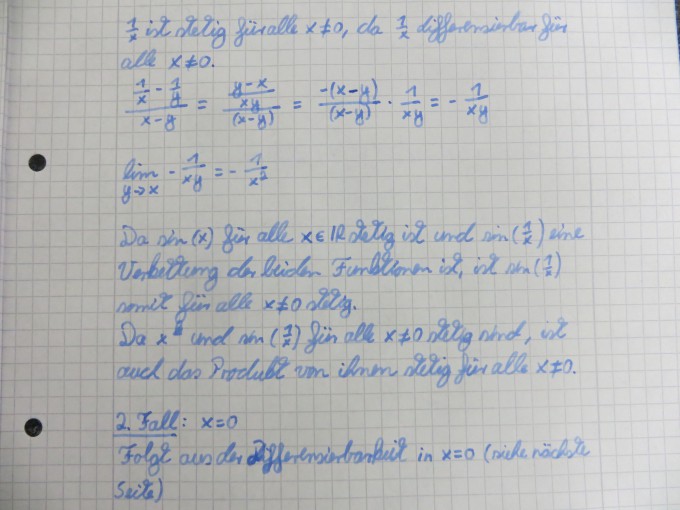 1/x ist stetig für alle x ≠ 0, da 1/x differenzierbar für
alle x ≠ 0.
(1/x - 1/y)/(x-y) = ((y-x)/(xy))/(x-y) = (-(x-y))/(x-y) · 1/(xy) = - 1/(xy)
lim y→x - 1/(xy) = - 1/x²
Da sin(x) für alle x ∈ ℝ stetig ist und sin(1/x) eine
Verkettung der beiden Funktionen ist, ist sin(1/x)
somit für alle x ≠ 0 stetig.
Da x² und sin(1/x) für alle x ≠ 0 stetig sind, ist
auch das Produkt von ihnen stetig für alle x ≠ 0.
2. Fall: x=0
Folgt aus der Differenzierbarkeit in x=0 (siehe nächste
Seite)